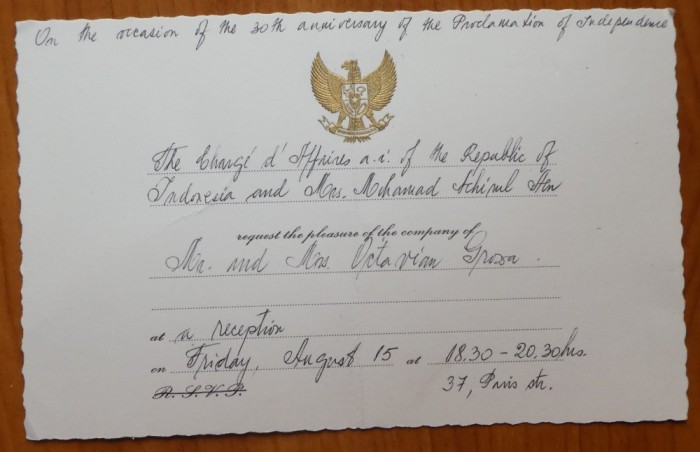 On the occasion of the 30th anniversary of the Proclamation of Independence
The Chargé d'Affaires a.i. of the Republic of
Indonesia and Mrs. Mohamad
request the pleasure of the company of
Mr. and Mrs. Octavian Groza.
at a reception
on Friday, August 15 at 18.30 - 20.30 hrs.
R. S. V. P.
37, Paris str.